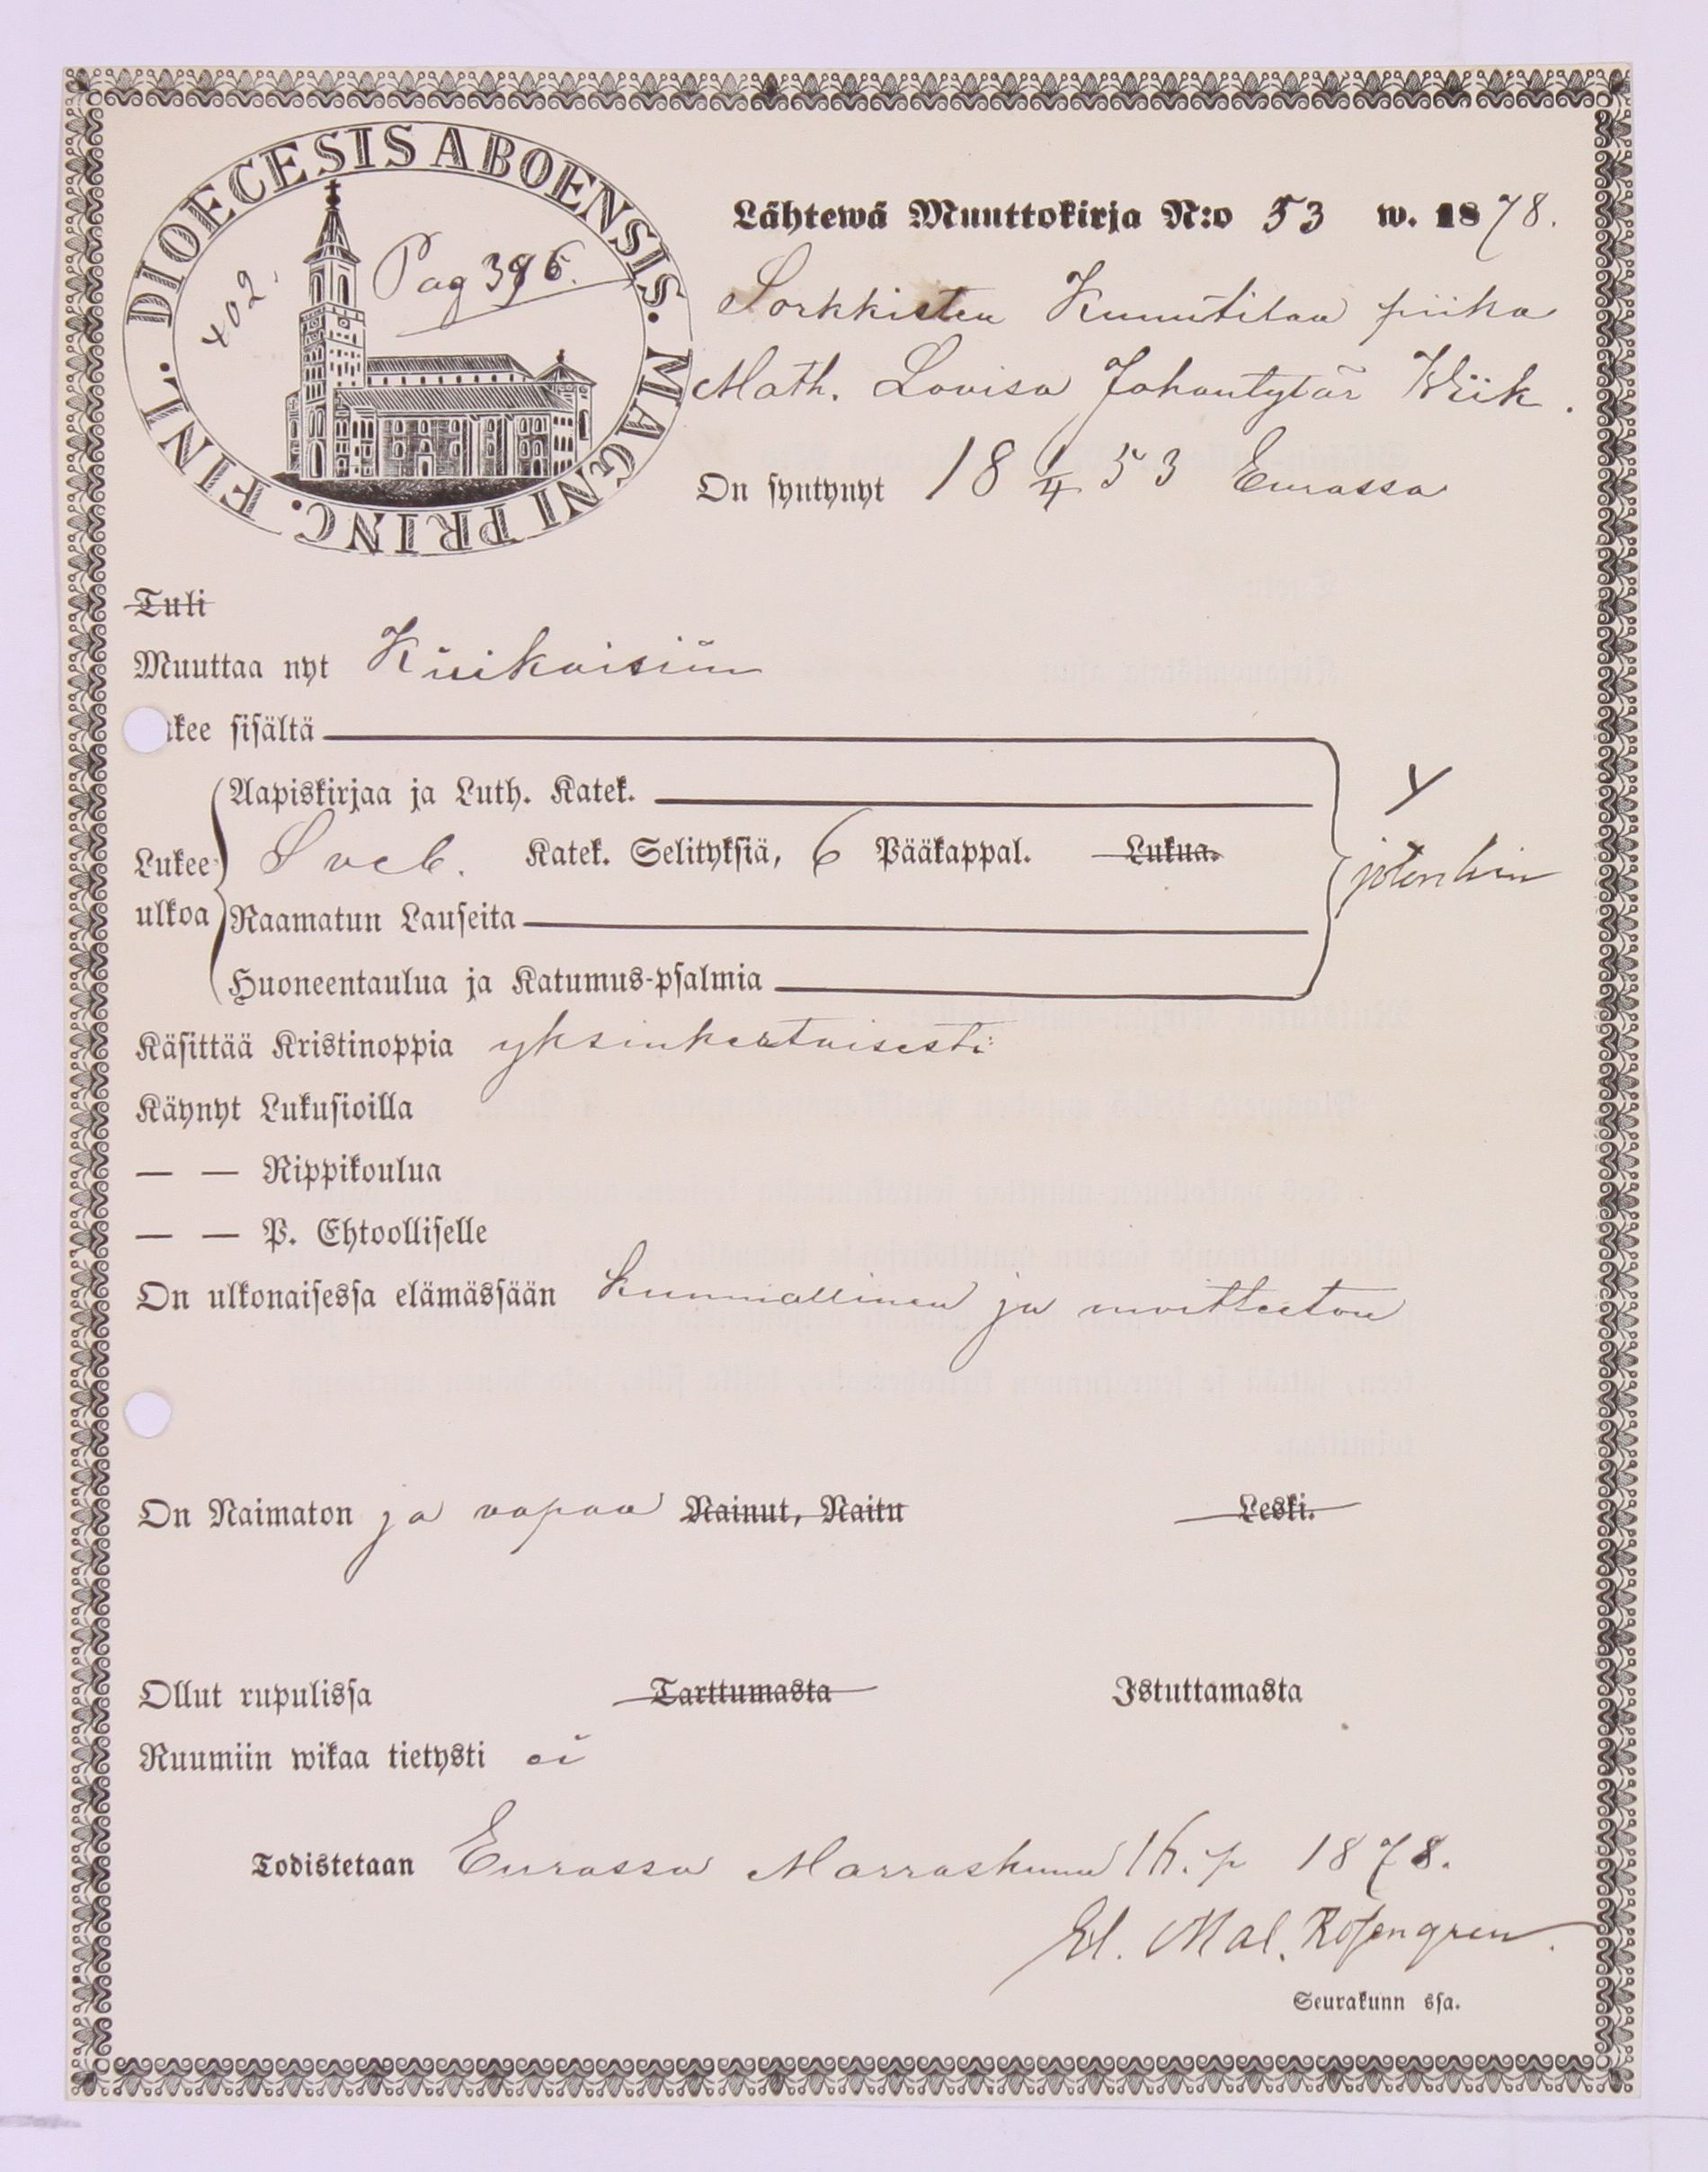 DIOECESIS ABOENSIS. MAGNI PRINC. FINL.
402.
Pag 396.
Lähtewä Muuttokirja N:o 53 w. 1878.
Sorkkisten Knuutilan piika
Math. Lovisa Johantytär Wiik.
On syntynyt 18 1/4 53 Eurassa
Tuli
Muuttaa nyt Kiikaisiin
kee sisältä
Aapiskirjaa ja Luth. Katek.
Y
Lukee ulkoa
Sveb. Katek. Selityksiä, 6 Pääkappal. Lukua.
jotenkin
Raamatun Lauseita
Huoneentaulua ja Katumus-psalmia
Käsittää Kristinoppia yksinkertaisesti
Käynyt Lukusioilla
— — Rippikoulua
— — P. Ehtoolliselle
On ulkonaisessa elämässään kunniallinen ja moitteeton
On Naimaton ja vapaa Nainut, Naitu Leski.
Ollut rupulissa Tarttumasta Istuttamasta
Ruumiin wikaa tietysti ei
Todistetaan Eurassa Marraskuun 16. p 1878.
El. Mal. Rosengren.
Seurakunn ssa.